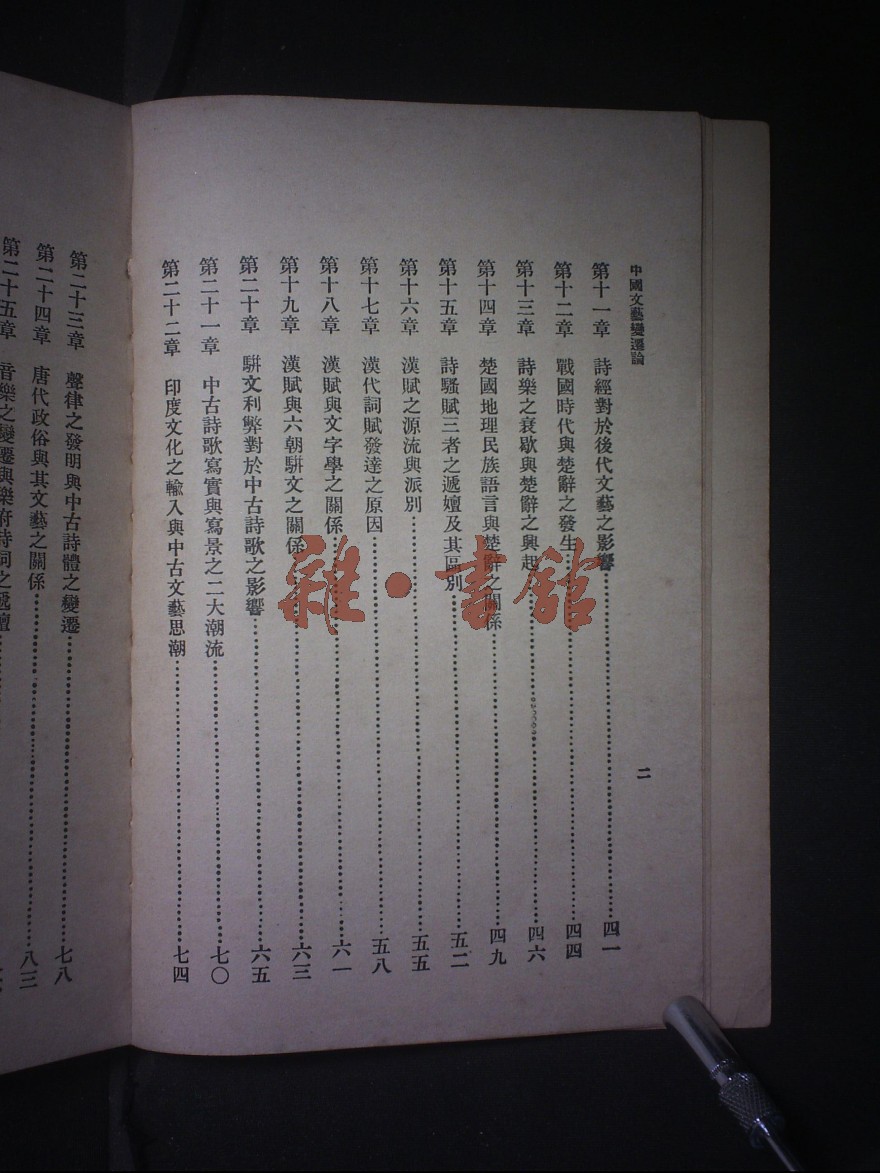 中國文藝變遷論
二
第十一章 詩經對於後代文藝之影響……四一
第十二章 戰國時代與楚辭之發生……四四
第十三章 詩樂之衰歇與楚辭之興起……四六
第十四章 楚國地理民族語言與楚辭之關係……四九
第十五章 詩騷賦三者之遞嬗及其區別……五二
第十六章 漢賦之源流與派別……五五
第十七章 漢代詞賦發達之原因……五八
第十八章 漢賦與文字學之關係……六一
第十九章 漢賦與六朝駢文之關係……六三
第二十章 駢文利弊對於中古詩歌之影響……六五
第二十一章 中古詩歌寫實與寫景之二大潮流……七〇
第二十二章 印度文化之輸入與中古文藝思潮……七四
第二十三章 聲律之發明與中古詩體之變遷……七八
第二十四章 唐代政俗與其文藝之關係……八三
第二十五章 音樂之變遷與樂府詩詞之遞嬗……
雜·書館